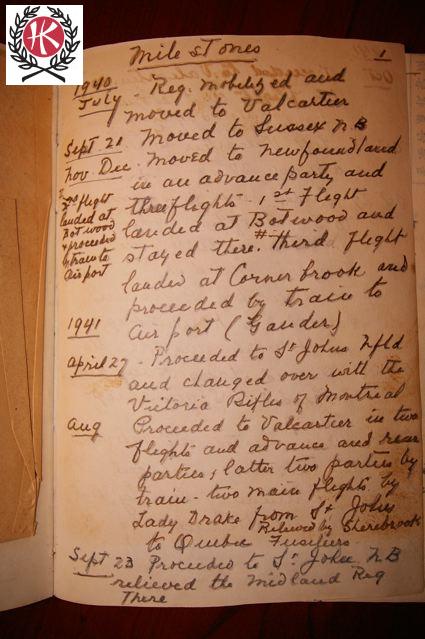 HK
Mile stones
1
1940
July - Reg. Mobilized and
moved to Valcartier
Sept. 20 Moved to Sussex N B
Nov - Dec - Moved to Newfoundland
in an advance party and
three flights - 1st Flight
landed at Botwood and
stayed there. # Third flight
2nd flight
landed at
Botwood
& proceeded
by train to
Air port
landed at Corner brook and
proceeded by train to
Air port (Gander)
1941
April 27 - Proceeded to St Johns Nfld
and changed over with the
Victoria Rifles of Montreal
Aug Proceeded to Valcartier in two
flights and advance and rear
parties, latter two parties by
train - two main flights by
Lady Drake from St Johns
Relieved by Sherebrook
to Quebec Fusiliers
Sept 23 Proceeded to St John N B
relieved the Midland Reg
There